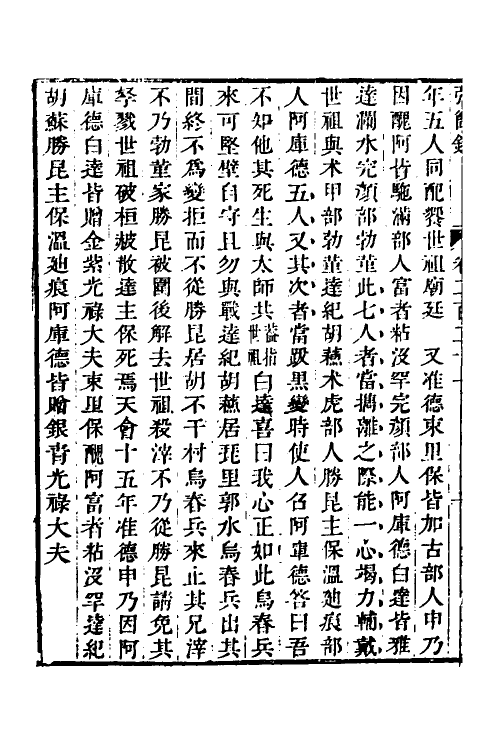 年五人同配饗世祖廟廷　又准德束里保皆加古部人申乃
因醜阿皆馳滿部人富者粘沒罕完顏部人阿庫德白達皆雅
達瀾水完顏部勃菫此七人者當攜離之際能一心竭力輔戴
世祖與术甲部勃菫達紀胡蘇术虎部人勝昆主保溫廸痕部
人阿庫德五人又其次者當跋黑變時使人召阿庫德答曰吾
不知他其死生與太師共蓋指世祖白達喜曰我心正如此烏春兵
來可堅壁自守且勿與戰達紀胡蘇居琵里郭水烏春兵出其
間終不爲變拒而不從勝昆居胡不干村烏春兵來止其兄滓
不乃勃菫家勝昆被圍後解去世祖殺滓不乃從勝昆請免其
孥戮世祖破桓赧散達主保死焉天會十五年准德申乃因阿
庫德白達皆贈金紫光祿大夫束里保醜阿富者粘沒罕達紀
胡蘇勝昆主保溫廸痕阿庫德皆贈銀青光祿大夫